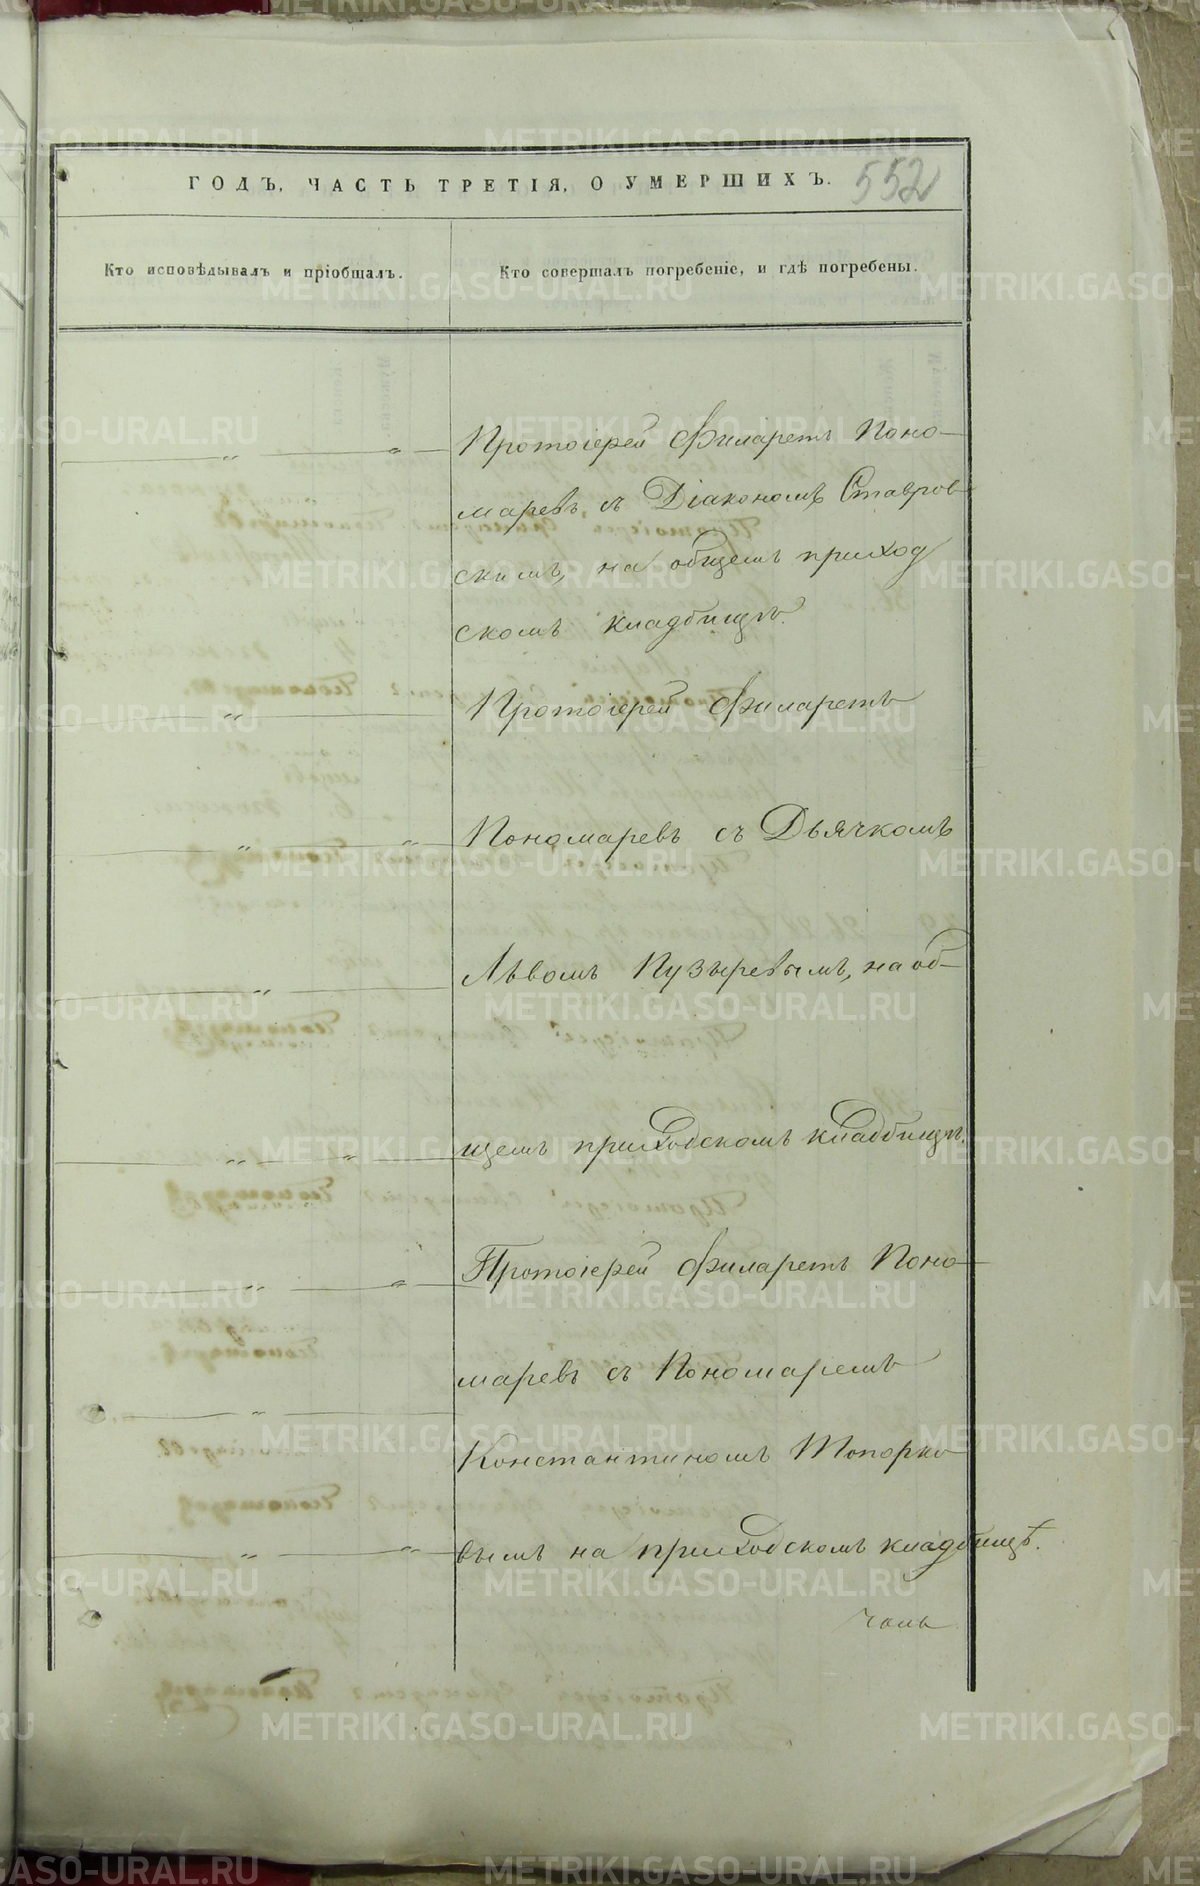 ГОДЪ, ЧАСТЬ ТРЕТІЯ, О УМЕРШИХЪ. 552
Кто исповѣдывалъ и пріобщалъ.
Кто совершалъ погребеніе, и гдѣ погребены.
Протоіерей Филаретъ Поно-
маревъ, съ Діакономъ Ставров-
скимъ, на общемъ приход
скомъ кладбищѣ.
Протоіерей Филаретъ
Пономаревъ съ Дьячкомъ
Львомъ Пузыревымъ, на об-
щемъ приходскомъ кладбищѣ.
Протоіерей Филаретъ Поно-
маревъ съ Пономаремъ
Константиномъ Топорко
вымъ на приходскомъ кладбищѣ.
METRIKI.GASO-URAL.RU